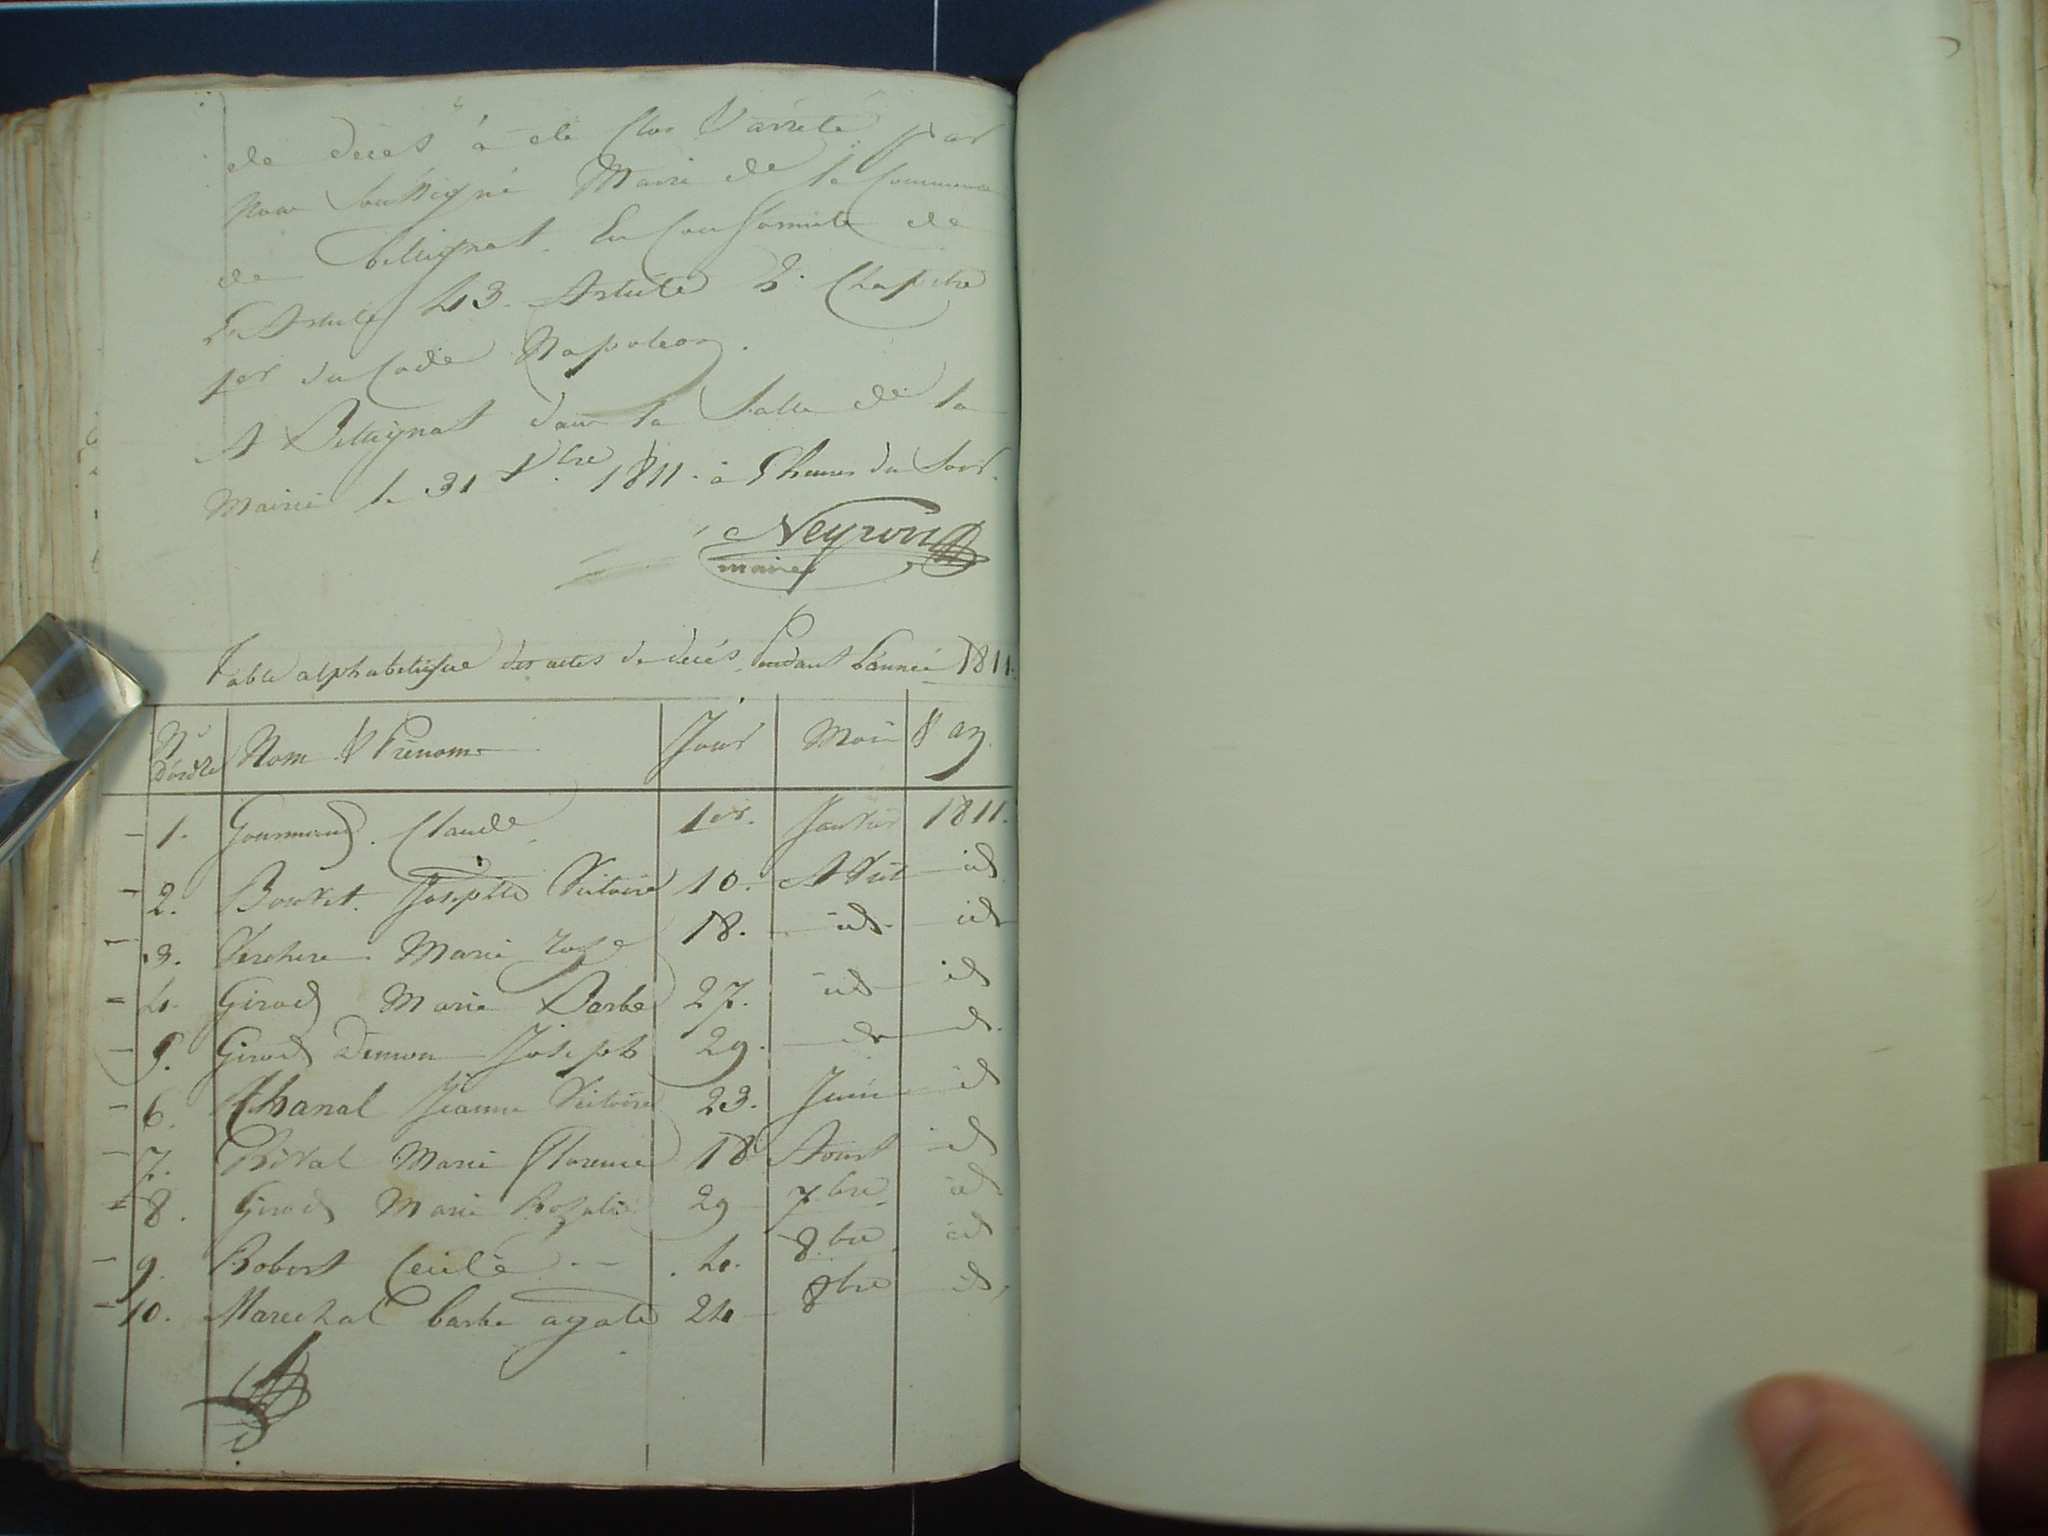 de deces a ete Clos & arrêté par
Nous Soussigné Maire de la Commune
de Bellignat. En Conformite de
L'Article 43. Article 2. Chapitre
1er du Code Napoleon.
A Bellignat dans la Salle de la
Mairie le 31 Xbre 1811. à 5 heures du Soir.
Neyron
maire
Table alphabetique des actes de decés Pendant L'année 1811.
No D'ordre Nom & Prenom Jour Mois & an.
1. Gourmand. Claude 1er. Janvier 1811.
2. Bouvet. Josephte Victoire 10. Avril id
3. Verchere Marie Rose 18. id. id
4. Girod Marie Barbe 27. id id
5. Girod Demon Joseph 29. id id.
6. Chanal Jeanne Victoire 23. Juin id
7. Rival Marie Florence 18 Aoust id
8. Girod Marie Rosalie 29 7bre id
9. Robert Cecile 4. 8bre id
10. Marechal barbe agate 24 8bre id